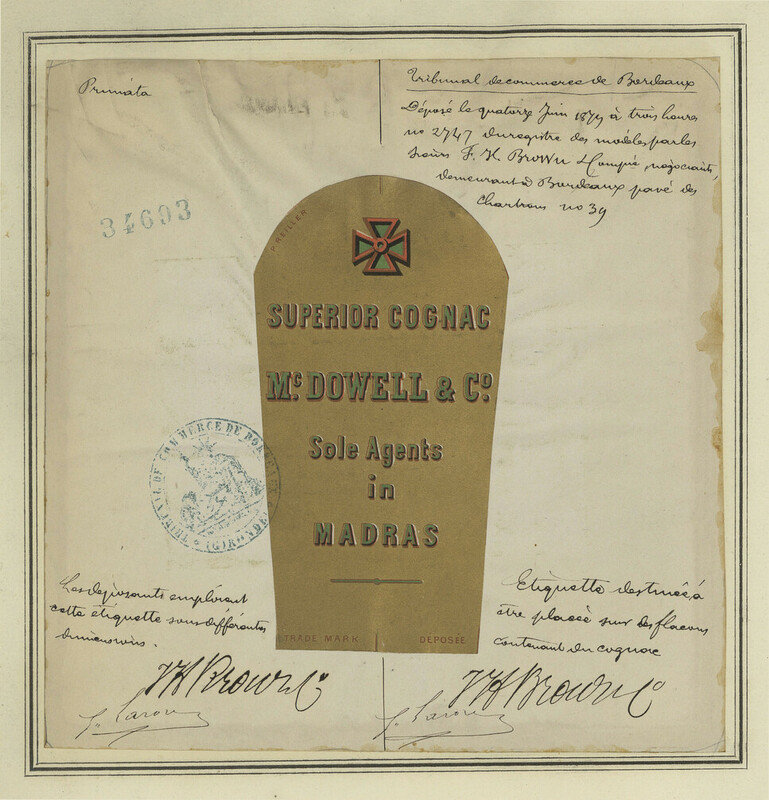 Primata
Tribunal de commerce de Bordeaux
Déposé le quatorze Juin 1879 à trois heures
no 2747 du registre des modèles par les
Sieurs F. H. Brown & Compie, négociants,
demeurant à Bordeaux pavé des
Chartrons no 39
34693
P. REILLER
SUPERIOR COGNAC
Mc. DOWELL & Co.
Sole Agents
in
MADRAS
TRIBUNAL DE COMMERCE DE BORDEAUX
(GIRONDE)
Les déposants emploient
cette étiquette sous différentes
dimensions.
Etiquette destinée à
être placée sur des flacons
contenant du cognac
TRADE MARK DÉPOSÉE
FH Brown & Co
FH Brown & Co